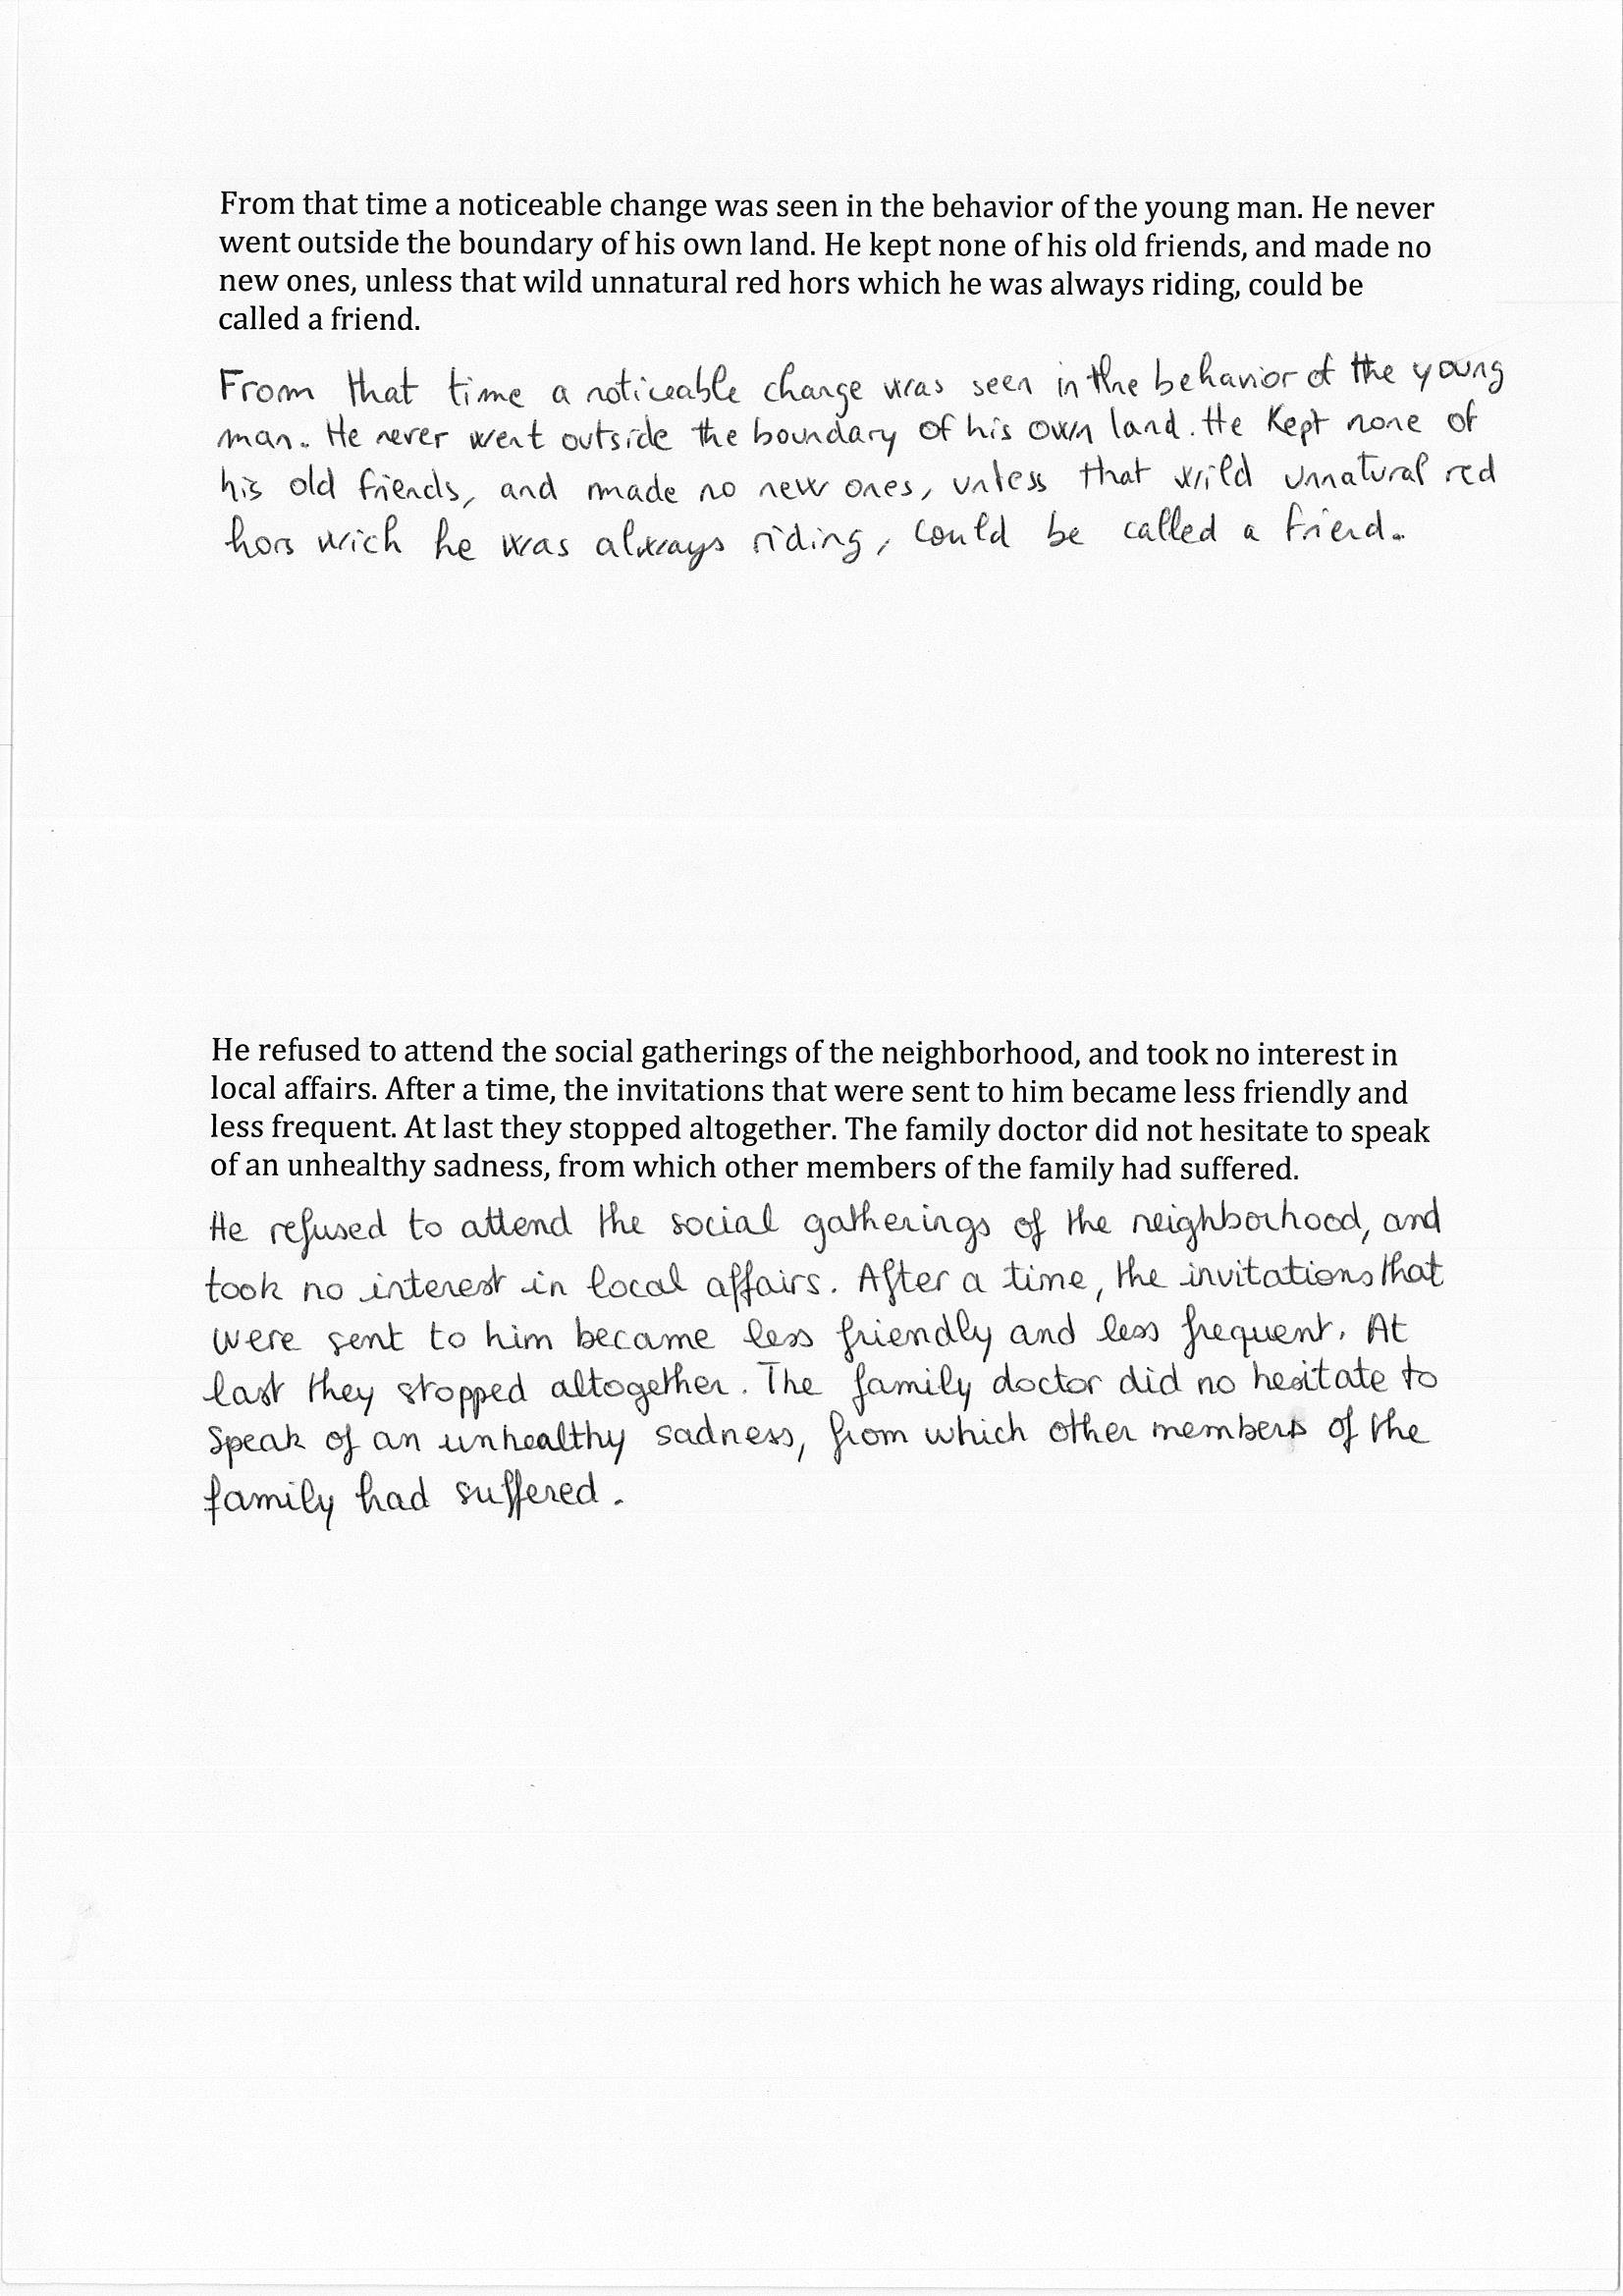 From that time a noticeable change was seen in the behavior of the young man. He never
went outside the boundary of his own land. He kept none of his old friends, and made no
new ones, unless that wild unnatural red hors which he was always riding, could be
called a friend.
From that time a noticeable change was seen in the behavior of the young
man. He never went outside the boundary of his own land. He kept none of
his old friends, and made no new ones, unless that wild unnatural red
hors wich he was always riding, could be called a friend.
He refused to attend the social gatherings of the neighborhood, and took no interest in
local affairs. After a time, the invitations that were sent to him became less friendly and
less frequent. At last they stopped altogether. The family doctor did not hesitate to speak
of an unhealthy sadness, from which other members of the family had suffered.
He refused to attend the social gatherings of the neighborhood, and
took no interest in local affairs. After a time, the invitations that
were sent to him became less friendly and less frequent. At
last they stopped altogether. The family doctor did no hesitate to
speak of an unhealthy sadness, from which other members of the
family had suffered.